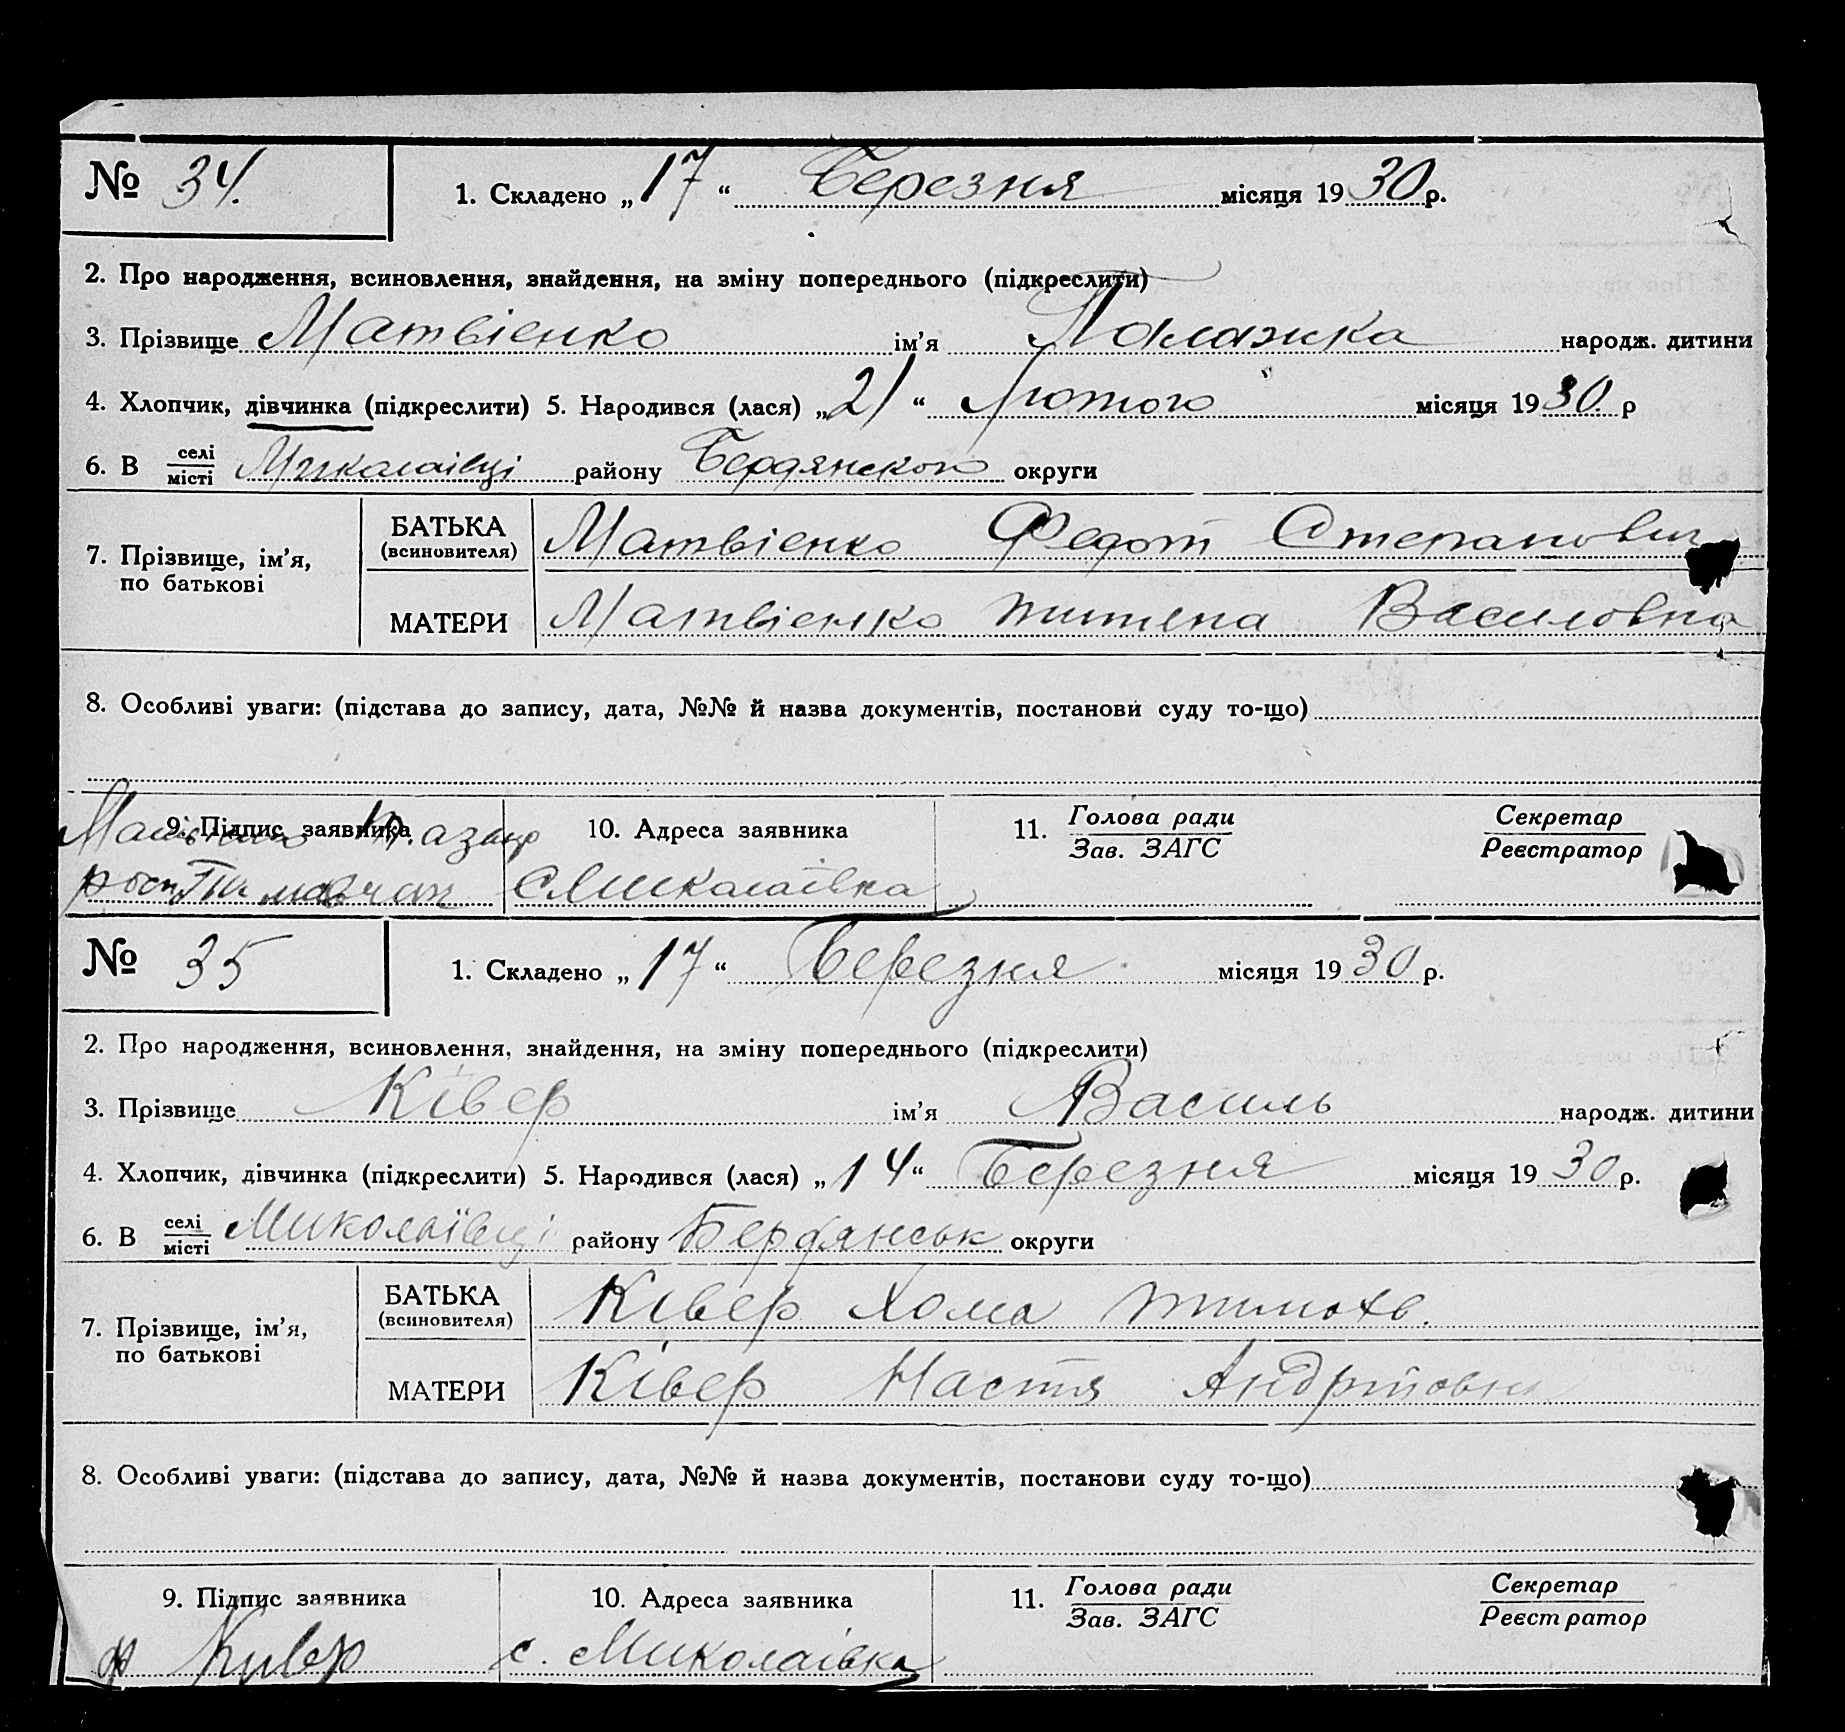 № 34. 1. Складено „17“ Березня місяця 1930 р.
2. Про народження, всиновлення, знайдення, на зміну попереднього (підкреслити)
3. Прізвище Матвієнко ім’я Палажка народж. дитини
4. Хлопчик, дівчинка (підкреслити) 5. Народився (лася) „21“ Лютого місяця 1930 р
6. В селі місті Миколаівці району Бердянского округи
7. Прізвище, ім’я, по батькові
БАТЬКА (всиновителя) Матвієнко Федот Степанович
МАТЕРИ Матвієнко Титяна Василовна
8. Особливі уваги: (підстава до запису, дата, №№ й назва документів, постанови суду то-що)
9. Підпис заявника 10. Адреса заявника 11. Голова ради Зав. ЗАГС Секретар Реєстратор
с Миколаівка
№ 35 1. Складено „17“ Березня місяця 1930 р.
2. Про народження, всиновлення, знайдення, на зміну попереднього (підкреслити)
3. Прізвище Ківер ім’я Василь народж. дитини
4. Хлопчик, дівчинка (підкреслити) 5. Народився (лася) „14“ Березня місяця 1930 р.
6. В селі місті Миколаївці району Бердянськ округи
7. Прізвище, ім’я, по батькові
БАТЬКА (всиновителя) Ківер Хома Тимохв.
МАТЕРИ Ківер Настя Андрїовни
8. Особливі уваги: (підстава до запису, дата, №№ й назва документів, постанови суду то-що)
9. Підпис заявника 10. Адреса заявника 11. Голова ради Зав. ЗАГС Секретар Реєстратор
Кивер с. Миколаівка